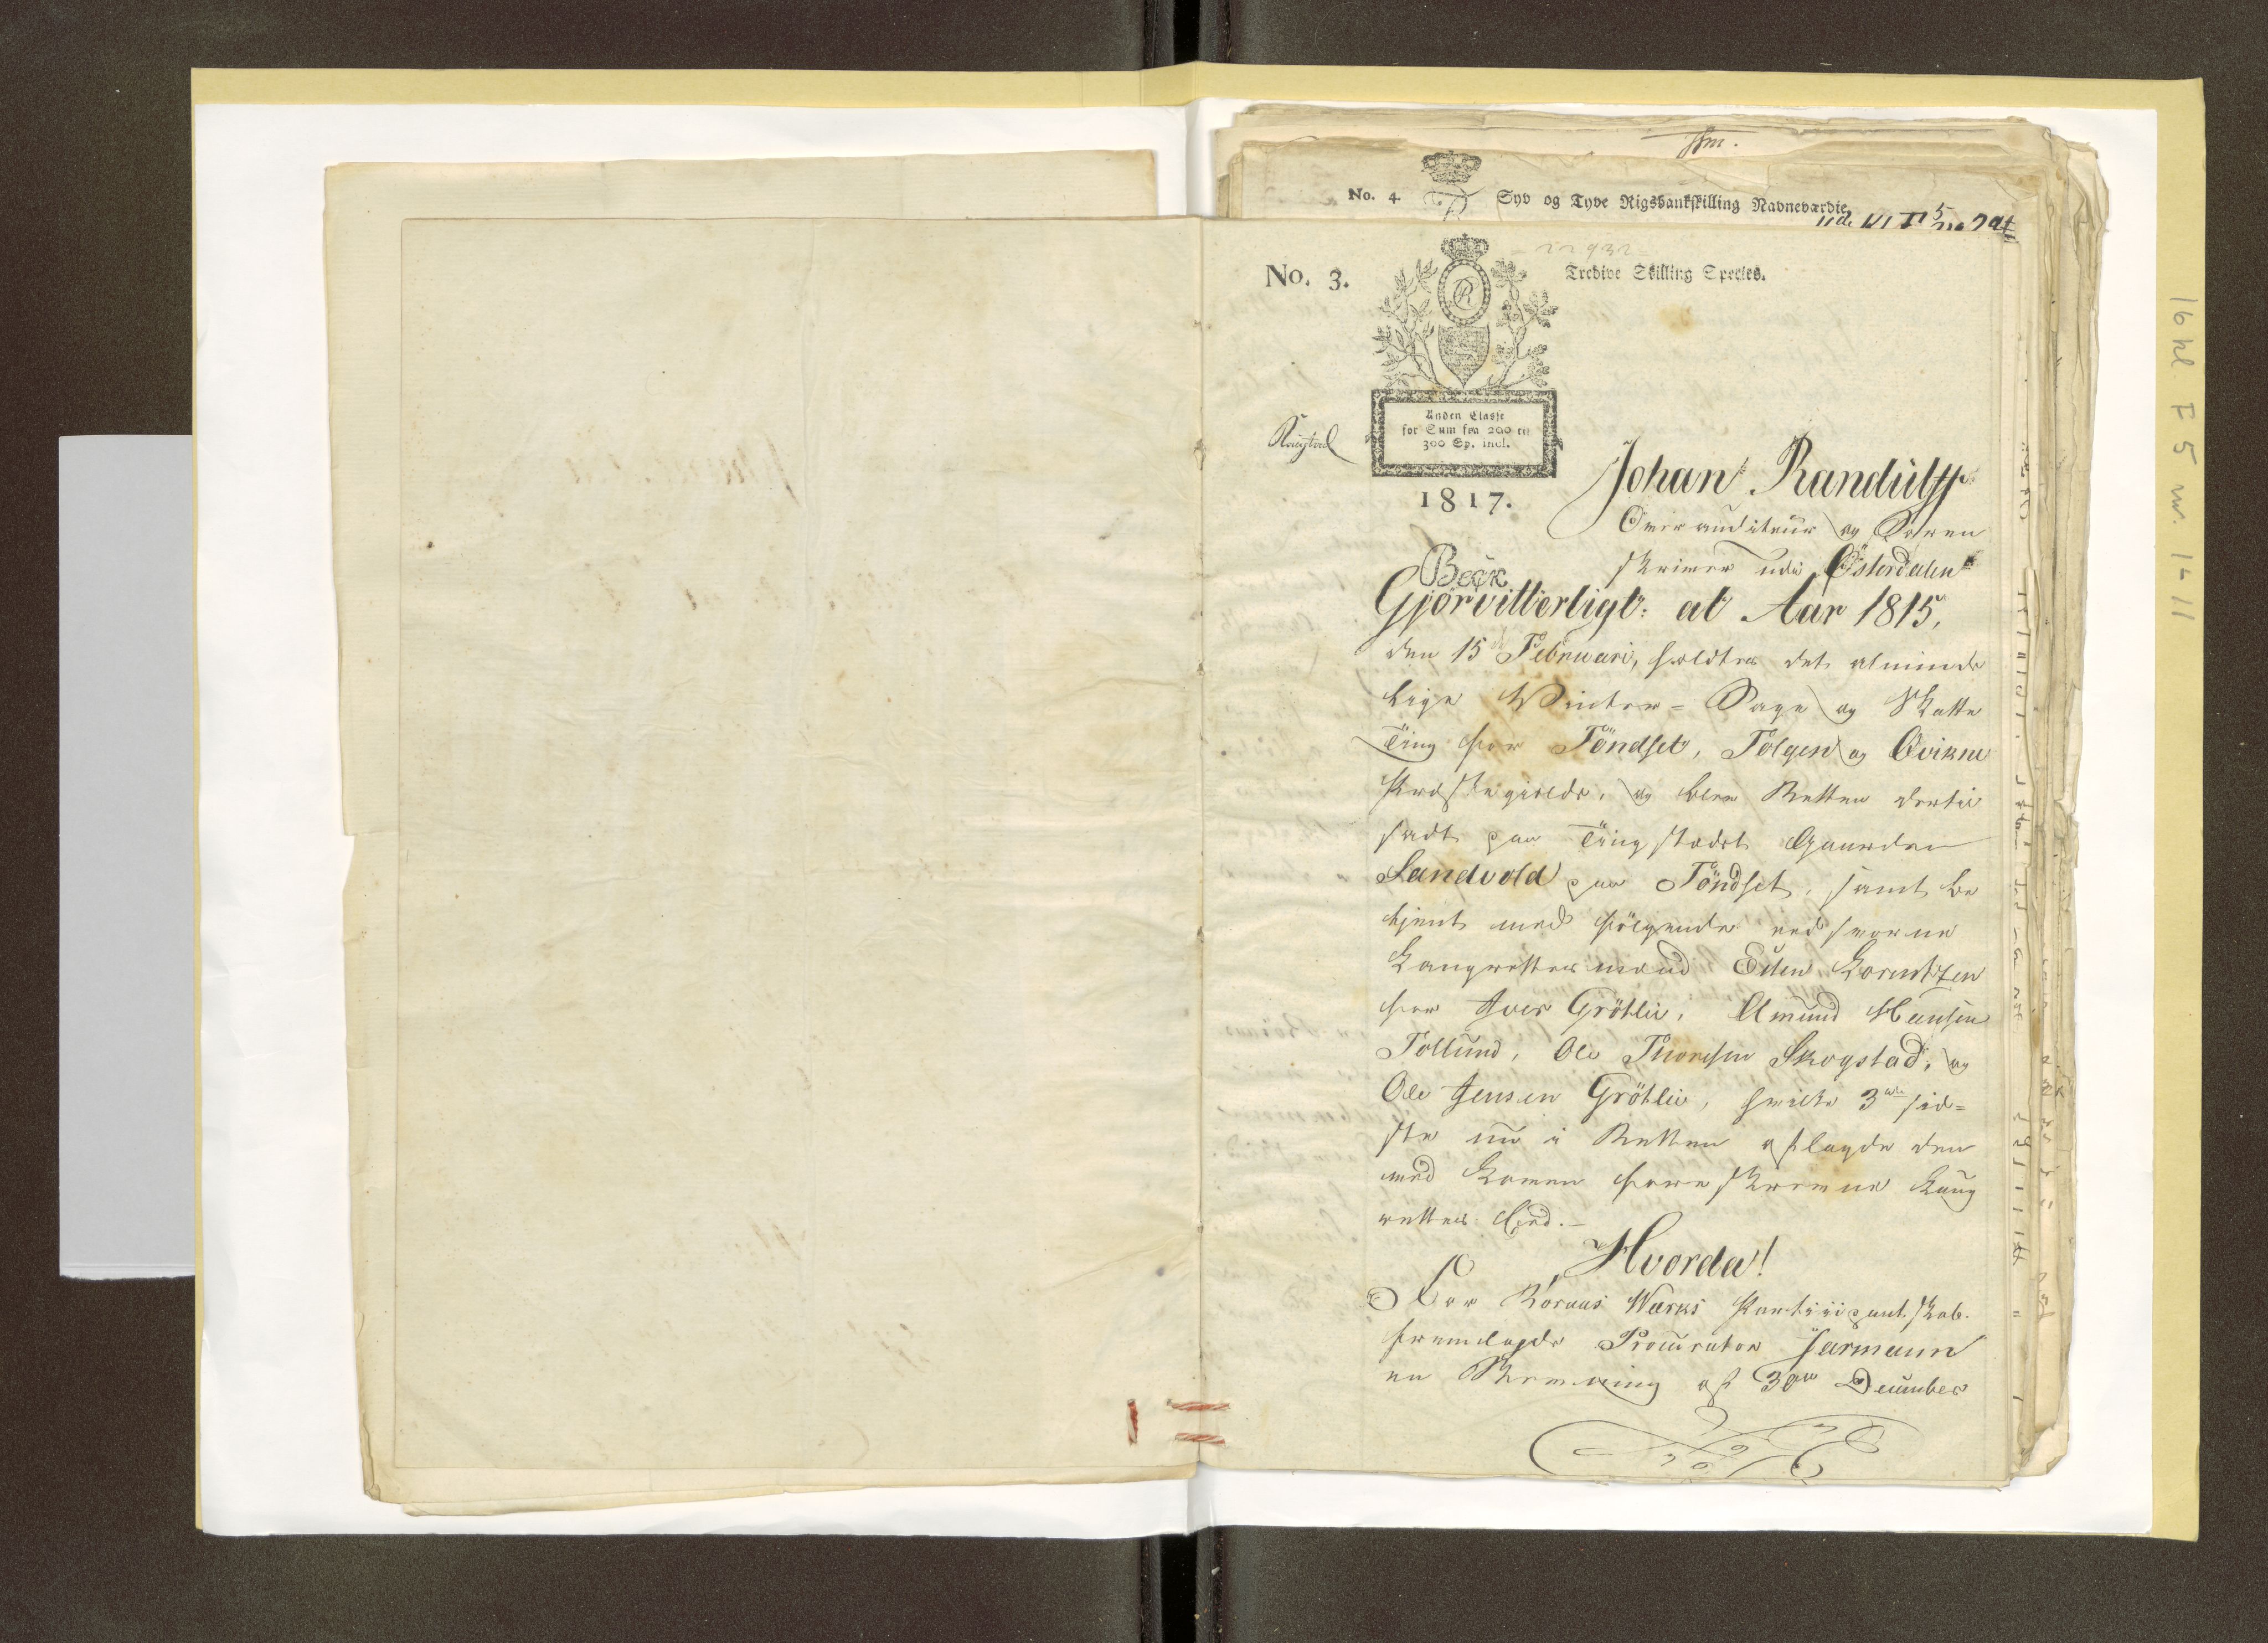 No. 4. Syv og Tyve Rigsbankskilling Navneværdie
No. 3. Tredive Skilling Species.
Anden Classe
for Sum fra 200 til
300 Sp. incl.
1817.
Johan Randulff
Overauditeur og Soren
skriver udi Österdalen
Beck
Gjör vitterligt: at Aar 1815,
den 15 Februari, holdtes det alminde
lige Winter- Sage og Skatte
Ting for Töndset, Tolgen og Qvikne
Præstegields, og blev Retten dertil
sadt paa Tingstædet Gaarden
Sandvold paa Töndset, samt be
tjent med følgende eedsvorne
Laugrettesmænd Eden Lorentzen
for Iver Gröthlie, Amund Hansen
Tollund, Ole Thoresen Skogstad, og
Ole Jensen Gröthlie, hvilke 3de sid=
ste nu i Retten aflagde den
ved Loven foreskrevne Laug
rettes Eed.-
Hvorda!
For Röraas Wærks Participantskab
fremlagde Procurator Jarmann
en Skrivning af 30te December
16 kl F 5 nr. 1-11